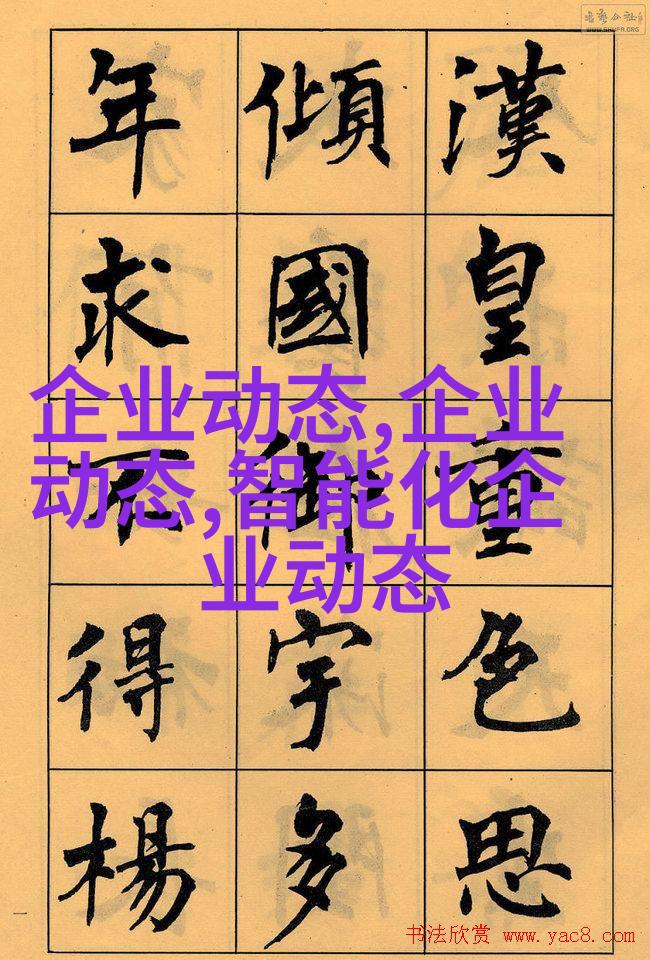 漢皇重色思
傾國御宇多
年求不得楊
企业动态,企业
动态,智能化企
业动态
书法欣赏 www.yac8.com
WWW.SHUFA.ORG
一